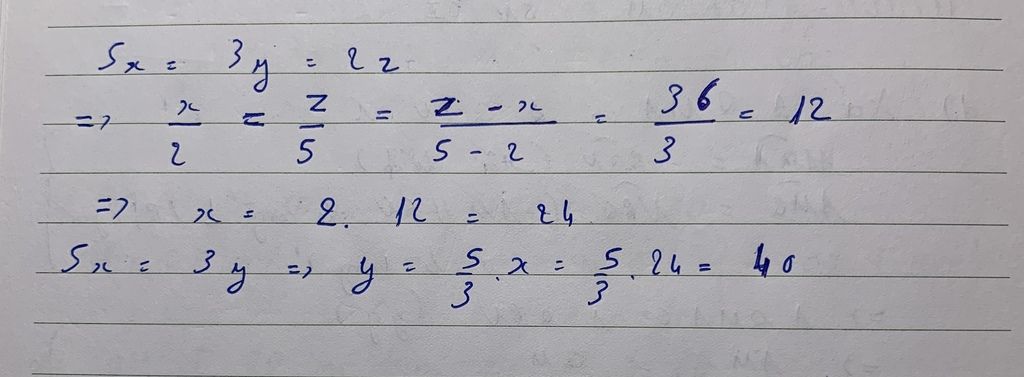 5x = 3y = 2z
=> x/2 = z/5 = z - x/5 - 2 = 36/3 = 12
=> x = 2. 12 = 24
5x = 3y => y = 5/3 . x = 5/3 . 24 = 40